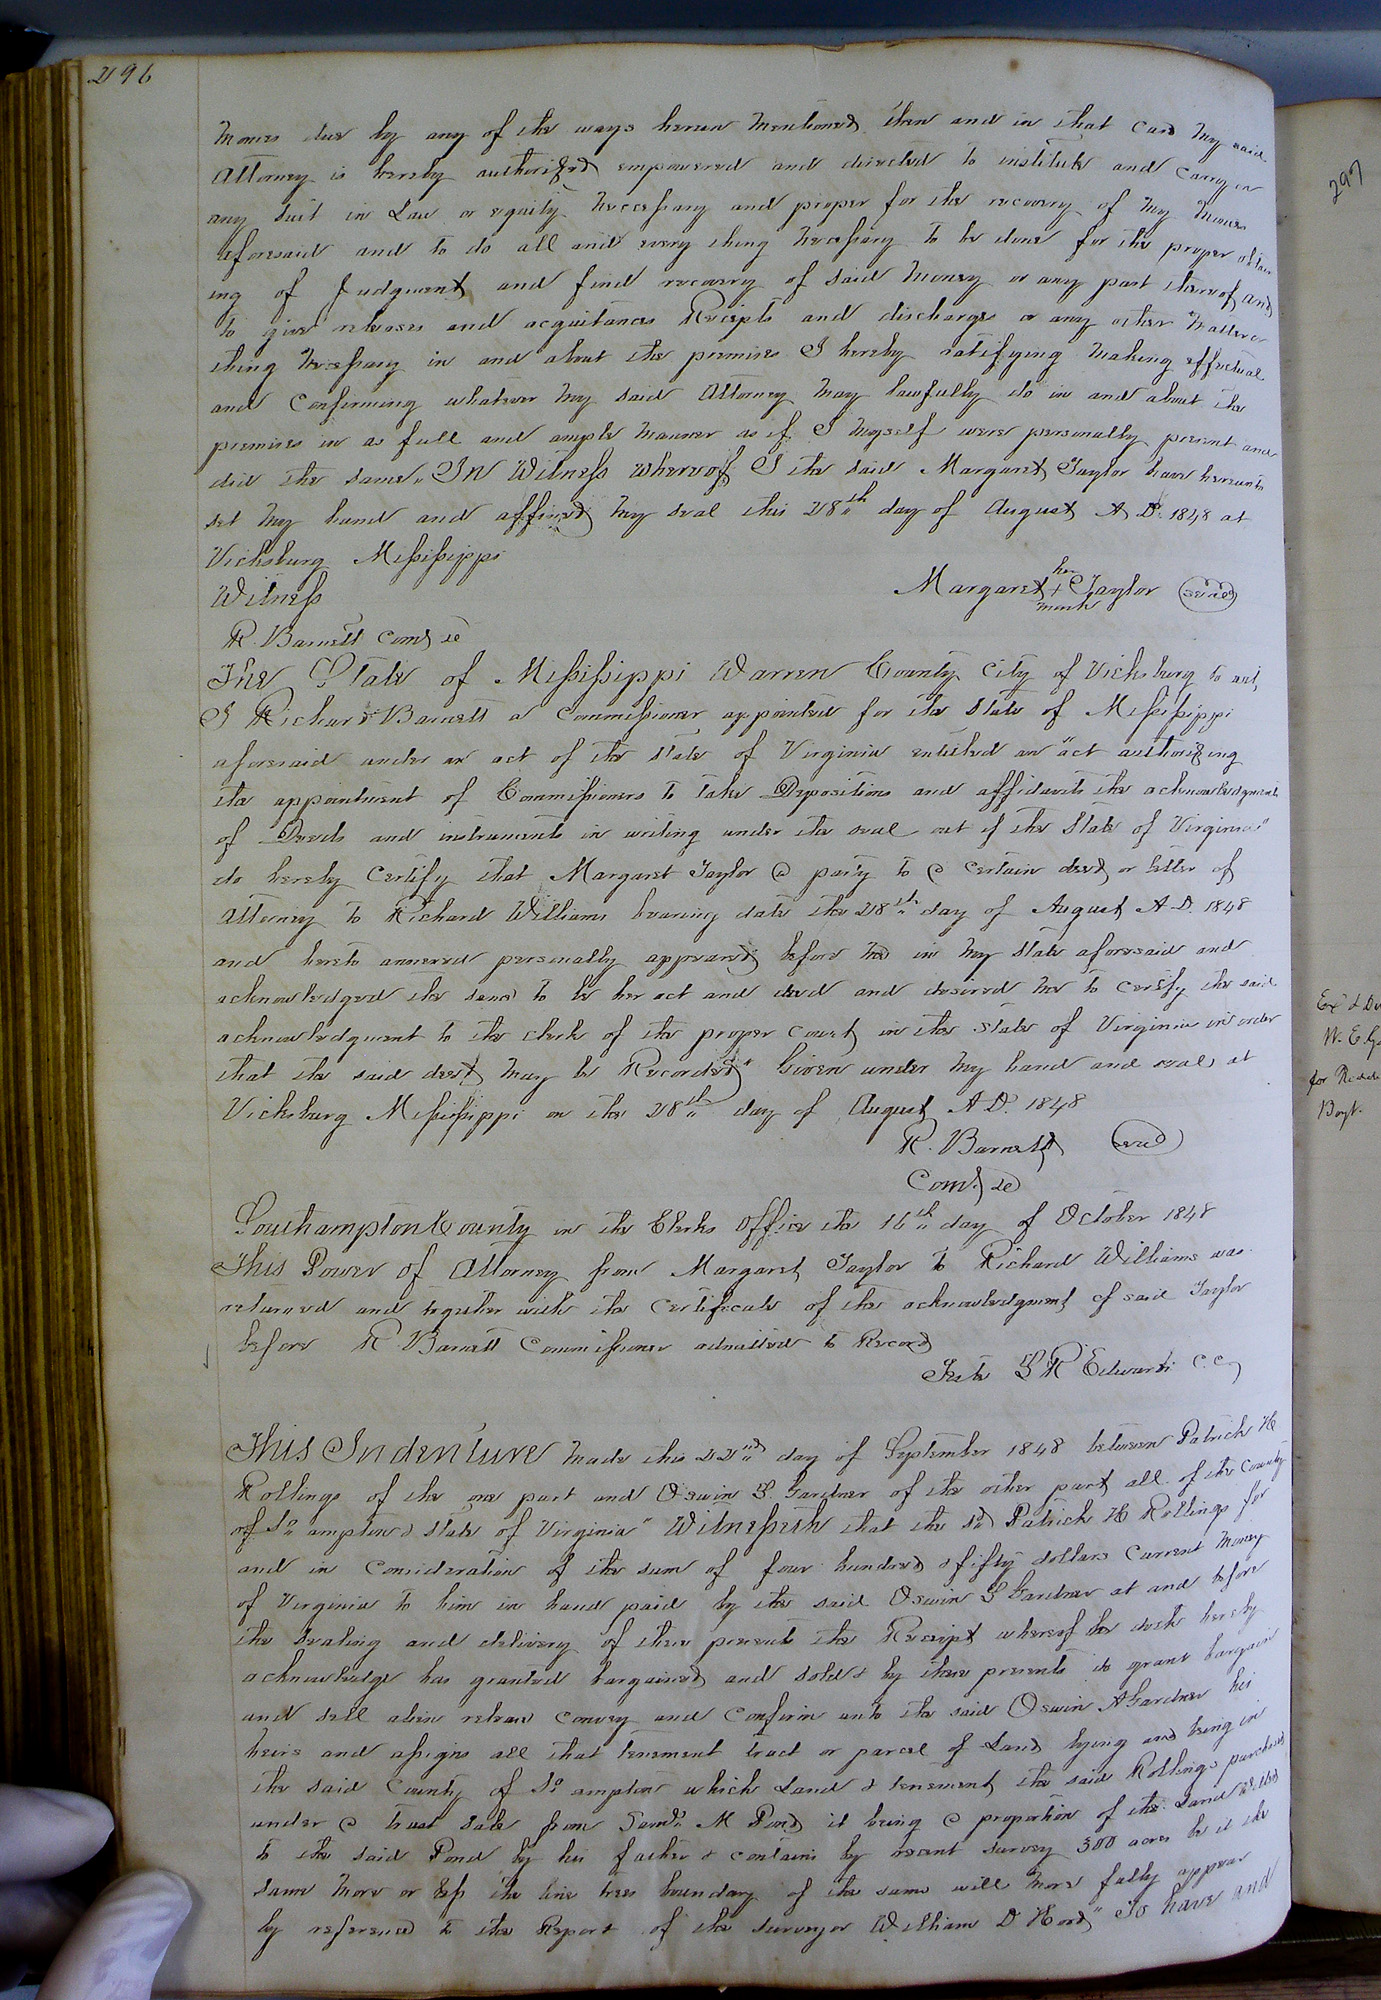 296
Monies due by any of the ways herein Mentioned then and in that Case My said
Attorney is hereby authorized empowered and directed to institute and Carry on
any suit in Law or equity Necessary and proper for the recovery of My Monies
aforesaid and to do all and every thing Necessary to be done for the proper obtain
ing of Judgment and find recovery of said Money or any part thereof and
to give releases and acquitances Receipts and discharges or any other Matter or
thing Necessary in and about the premises I hereby ratifying Making effectual
and Confirming whatever My said Attorney May lawfully do in and about the
premises in as full and ample Manner as if I Myself were personally present and
did the same. In Witness whereof I the said Margaret Taylor have hereunto
set My hand and affixed My seal this 28th day of August A D. 1848 at
Vicksburg Mississippi
Witness
Margaret her + mark Taylor seal
R. Barnett Com &c
The State of Mississippi Warren County City of Vicksburg to wit,
I Richard Barnett a Commissioner appointed for the State of Mississippi
aforesaid under an act of the State of Virginia entitled an "act authorizing
the appointment of Commissioners to take Depositions and affidavits the acknowledgments
of Deeds and instruments in writing under the seal out of the State of Virginia"
do hereby Certify that Margaret Taylor a party to a Certain deed or letter of
Attorney to Richard Williams bearing date the 28th day of August A. D. 1848
and hereto annexed personally appeared before me in My State aforesaid and
acknowledged the same to be her act and deed and desired me to Certify the said
acknowledgment to the clerk of the proper Court in the State of Virginia in order
that the said deed May be Recorded" Given under My hand and seal at
Vicksburg Mississippi on the 28th day of August A. D. 1848
R. Barnett seal
Com &c
Southampton County in the Clerks Office the 16th day of October 1848
This Power of Attorney from Margaret Taylor to Richard Williams was
returned and together with the Certificate of the acknowledgment of said Taylor
before R Barnett Commissioner admitted to Record
Teste L R Edwards C. C
This Indenture Made this 22nd day of September 1848 between Patrick H
Rollings of the one part and Oswin S Gardner of the other part all of the County
of So ampton & State of Virginia" Witnesseth that the sd Patrick H Rollings for
and in Consideration of the sum of four hundred & fifty dollars Current Money
of Virginia to him in hand paid by the said Oswin S Gardner at and before
the sealing and delivery of these presents the Receipt whereof he doth hereby
acknowledge has granted bargained and sold & by these presents do grant bargain
and sell alien release Convey and Confirm unto the said Oswin A Gardner his
heirs and assigns all that tenement tract or parcel of Land lying and being in
the said County of So ampton which Land & tenement the said Rollings purchased
under a trust sale from Saml. M Pond it being a proportion of the Land willed
to the said Pond by his father & contains by recent survey 300 acres be it the
same More or less the line trees boundary of the same will More fully appear
by reference to the Report of the surveyor William D Hood" To have and
297
Ex & De
W. E. Ga
for
Boyt.